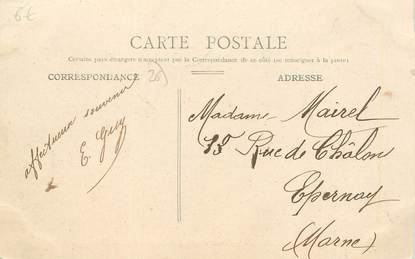 6€
CARTE POSTALE
Certains pays étrangers n'acceptent pas la Correspondance de ce côté (se renseigner à la poste)
CORRESPONDANCE
26
ADRESSE
affectueux souvenir
E.
Madame Mairel
Rue de Châlon
Epernay
(Marne)